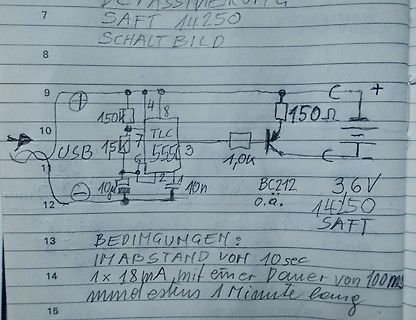 7
SAFT 14250
SCHALTBILD
8
9
+
4
8
+
150k
150Ω
10
TLC
7
555
3
USB
1,5k
6
1,0k
11
2
1
10µ
10n
BC212
o.ä.
3,6V
14250
SAFT
12
13
BEDINGUNGEN:
IM ABSTAND VON 10sec
14
1x 18mA, mit einer Dauer von 100ms
mindestens 1 Minute lang
15